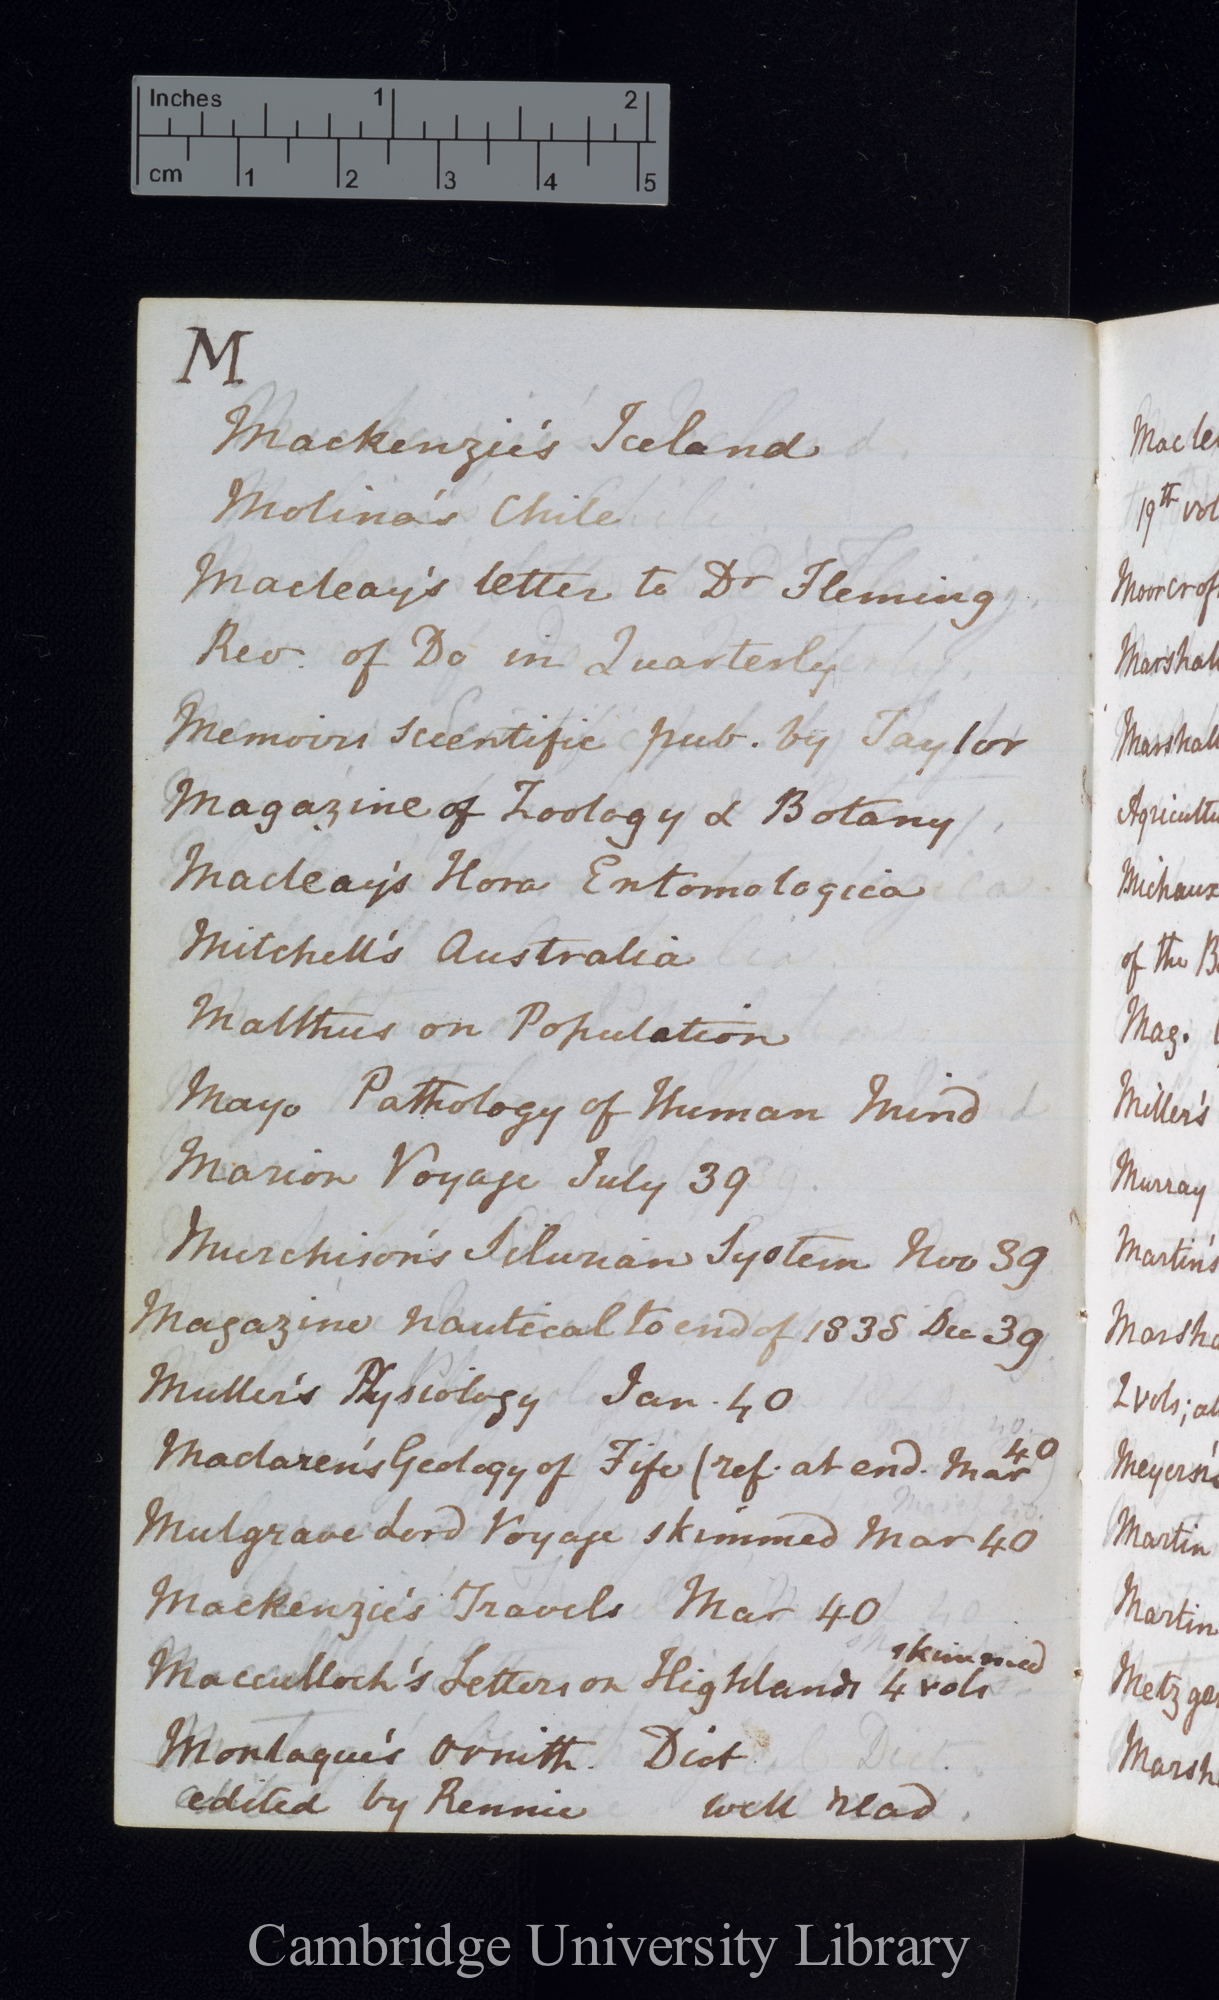 Inches 1 2
cm 1 2 3 4 5
M
Mackenzie's Iceland
Molina's Chile
Macleay's letter to Dr Fleming
Rev. of Do in Quarterly
Memoirs scientific pub. by Taylor
Magazine of Zoology & Botany
Macleay's Hora Entomologica
Mitchell's Australia
Malthus on Population
Mayo Pathology of Human Mind
Marion Voyage July 39
Murchison's Silurian System Nov 39
Magazine nautical to end of 1838 Dec 39
Muller's Physiology Jan. 40
Maclaren's Geology of Fife (ref. at end. Mar 40
Mulgrave Lord Voyage skimmed Mar 40
Mackenzie's Travels Mar 40
skimmed
Macculloch's Letters on Highlands 4 vols
Montague's Ornith. Dict
edited by Rennie well read.
19th vol
Moorcrof
Marshall
Marshall
Agricultu
Michaux
of the B
Mag.
Miller's
Murray
Martin's
Marsha
2 vols; al
Meyers's
Martin
Martin
Metzger
Marsh
Cambridge University Library